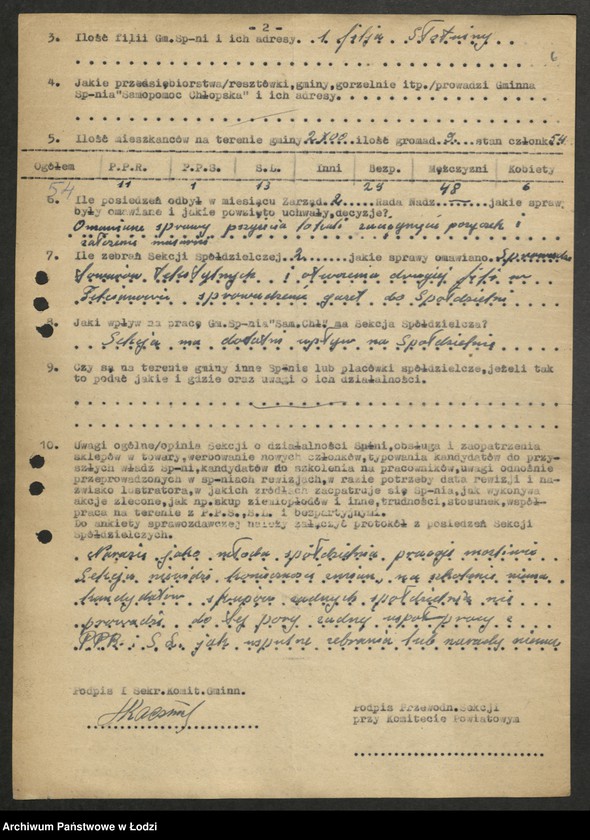 - 2 -
6
3. Ilość filii Gm.Sp-ni i ich adresy. 1. filja
4. Jakie przedsiębiorstwa/resztówki,gminy,gorzelnie itp./prowadzi Gminna
Sp-nia"Samopomoc Chłopska" i ich adresy
5. Ilość mieszkańców na terenie gminy 2800..ilość gromad.9..stan członk.54
Ogółem P.P.R. P.P.S. S.L. Inni Bezp. Mężczyzni Kobiety
54 11 1 13 29 48 6
6. Ile posiedzeń odbył w miesiącu Zarząd.2.....Rada Nadz.......jakie spraw
były omawiane i jakie powzięto uchwały,decyzje?
Omawiane sprawy lokali
założenie
7. Ile zebrań Sekcji Spółdzielczej.2.......jakie sprawy omawiano.
towarów i otworzenia drugiej filji w
sprowadzenia gazet do Spółdzielni
8. Jaki wpływ na pracę Gm.Sp-nia"Sam.Chł" ma Sekcja Spółdzielcza?
Sekcja ma dodatni wpływ na Spółdzielnię
9. Czy są na terenie gminy inne Sp-nie lub placówki spółdzielcze,jeżeli tak
to podać jakie i gdzie oraz uwagi o ich działalności.
10. Uwagi ogólne/opinia Sekcji o działalności Spłni,obsługa i zaopatrzenia
sklepów w towary,werbowanie nowych członków,typowania kandydatów do przy-
szłych władz Sp-ni,kandydatów do szkolenia na pracowników,uwagi odnośnie
przeprowadzonych w sp-niach rewizjach,w razie potrzeby data rewizji i na-
zwisko lustratora,w jakich źródłach zaopatruje się Sp-nia,jak wykonywa
akcje zlecone,jak np.skup ziemiopłodów i inne,trudności,stosunek,współ-
praca na terenie z P.P.S.,S.L. i bezpartyjnymi.
Do ankiety sprawozdawczej należy załączyć protokół z posiedzeń Sekcji
Spółdzielczych.
Narazie jako młoda spółdzielnia pracuje możliwie
Sekcja konieczności zmian, na szkolenie niema
kandydatów żadnych spółdzielnia nie
prowadzi do tej pory żadny pracy z
PPR i S.L. jak zebrania lub narady niema
Podpis I Sekr.Komit.Gminn.
Podpis Przewodn.Sekcji
przy Komitecie Powiatowym
Archiwum Państwowe w Łodzi